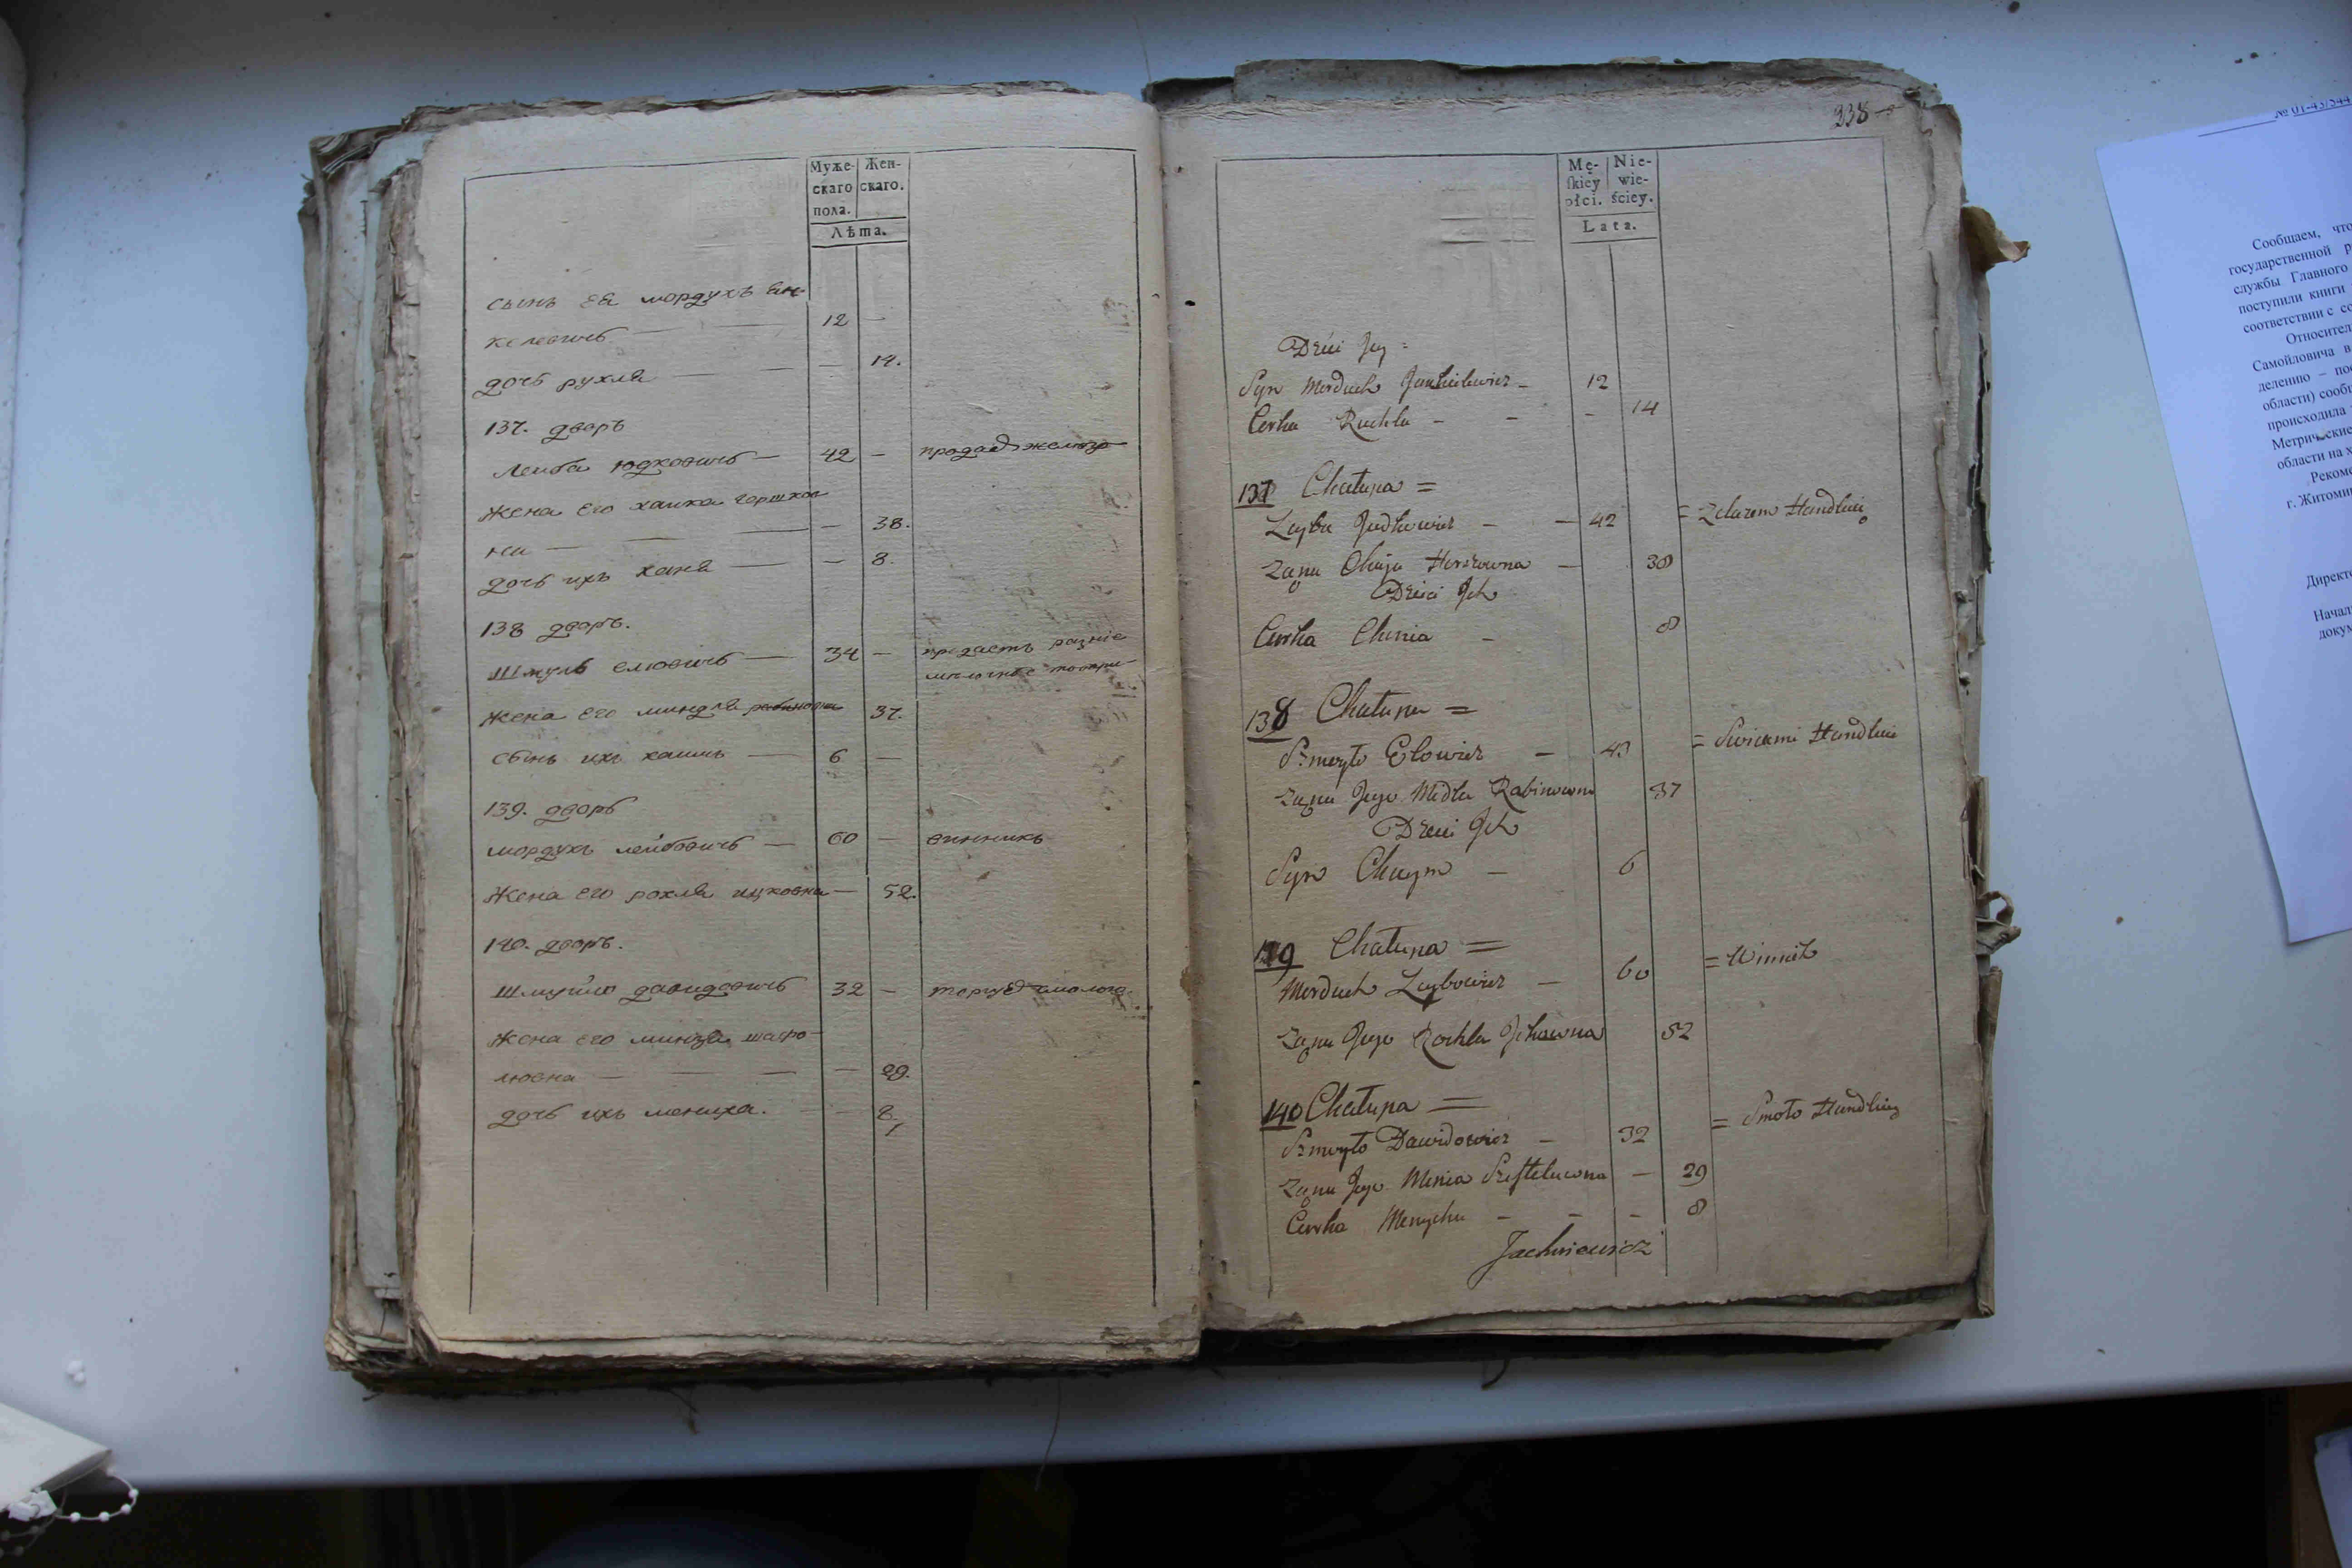 Муже-
скаго
пола.
Жен-
скаго.
Лѣта.
сынъ ея мордухъ ян-
келевичъ — — 12 —
дочь рухля — — — 14.
137. дворъ
Лейба юдковичъ — 42 — продаетъ желѣзо
жена его хайка гершков
на — — — 38.
дочь ихъ ханя — — 8.
138 дворъ.
Шмуль елювичъ — 34 — продаетъ разніе
мѣлочніе товари
жена его миндля рабиновна 37.
сынъ ихъ хаимъ — 6 —
139. дворъ
мордухъ лейбовичъ — 60 — винникъ
жена его рохля ицковна — 52.
140. дворъ.
Шмуйло давидовичъ 32 — торгуетъ смолою
жена его
— — — 29.
дочь ихъ мениха. — — 8.
338
Mę-
ſkiey
płci.
Nie-
wie-
ściey.
Lata.
Dzieci Jey =
Syn Morduch Jankielewicz — 12
Corka Ruchla — — — 14
137 Chałupa =
Leyba Judkowicz — — 42 = Zelazem Handluie
Zona Chaja Herszowna — 38
Dzieci Ich
Corka Chania — 8
138 Chałupa =
Szmuyło Elowicz — 43 = Swicami Handluie
Zona Jego Midla Rabinowna 37
Dzieci Ich
Syn Chaym — 6
139 Chałupa =
Morduch Leybowicz — 60 = Winnik
Zona Jego Rochla Ickowna 52
140 Chałupa =
Szmuyło Dawidowicz — 32 = Smoło Handluie
Zona Jego Minia — 29
Corka Menycha — — — 8
Jachniewicz
№ 01-43/544
Сообщаем, что
государственной р
службы Главного
поступили книги
соответствии с со
Относител
Самойловича в
делению – пос
области) сооб
происходила
Метрические
области на х
Рекоме
г. Житоми
Директо
Начал
докум